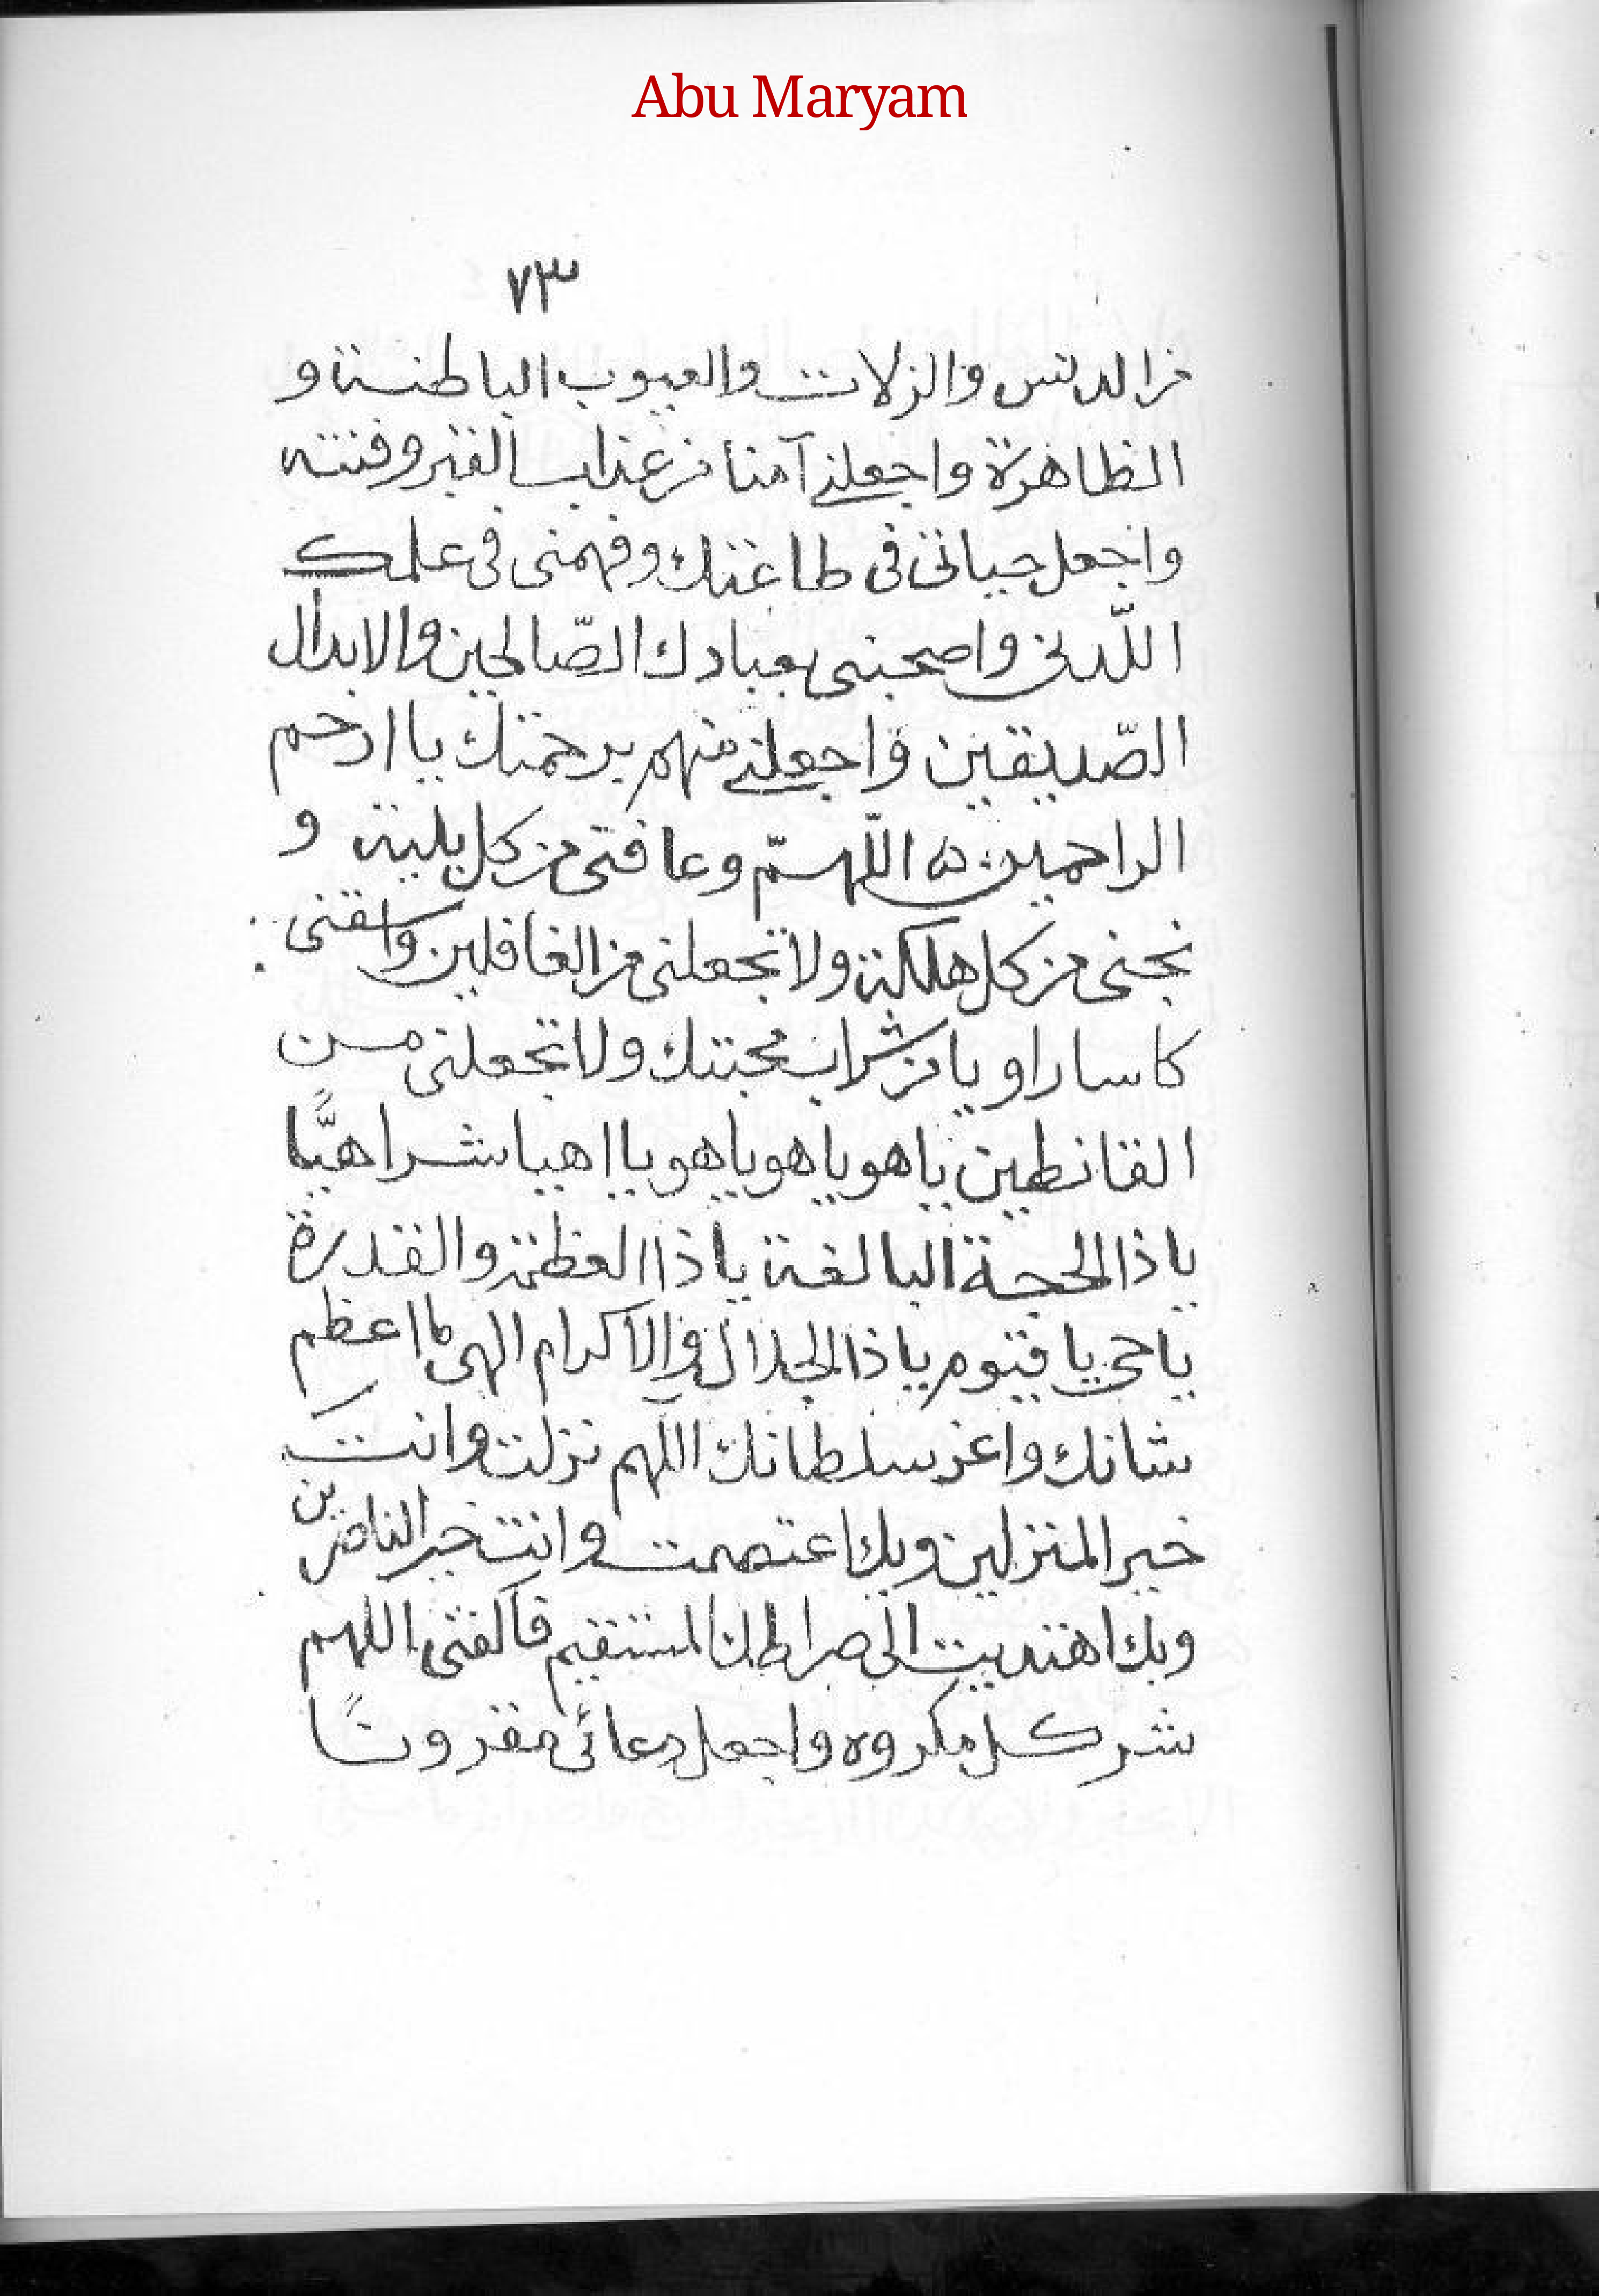 Abu Maryam
٧٣
من الدنس والزلات والعيوب الباطنة و
الظاهرة واجعلني آمنا من عذاب القبر وفتنته
واجعل حياتى فى طاعتك وفهمنى فى علمك
اللّدنى واصحبنى بعبادك الصّالحين والابدال
الصّديقين واجعلني منهم برحمتك يا ارحم
الراحمين ه اللّهمّ وعافنى من كل بلية و
نجنى من كل هلكة ولا تجعلنى من الغافلين واسقنى
كاسا راويا من شراب محبتك ولا تجعلنى من
القانطين ياهو ياهو ياهو يا اهيا شراهيًّا
ياذا الحجة البالغة ياذا العظمة والقدرة
ياحى يا قيوم ياذا الجلال والاكرام الهى ما اعظم
شانك واعز سلطانك اللهم نزلت وانت
خير المنزلين وبك اعتصمت وانت خير الناصرين
وبك اهتديت الى صراطك المستقيم فاكفنى اللهم
شر كل مكروه واجعل دعائى مقرونًا